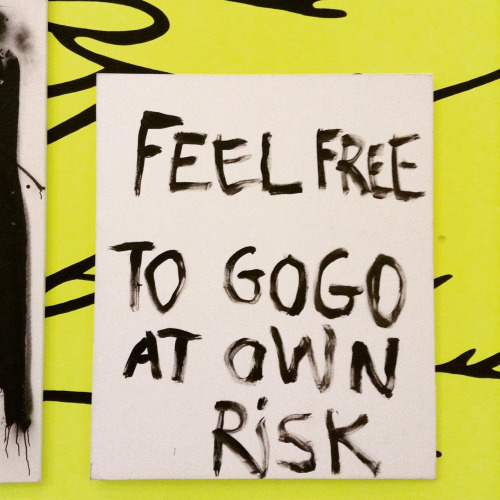 FEEL FREE
TO GOGO
AT OWN
RiSK